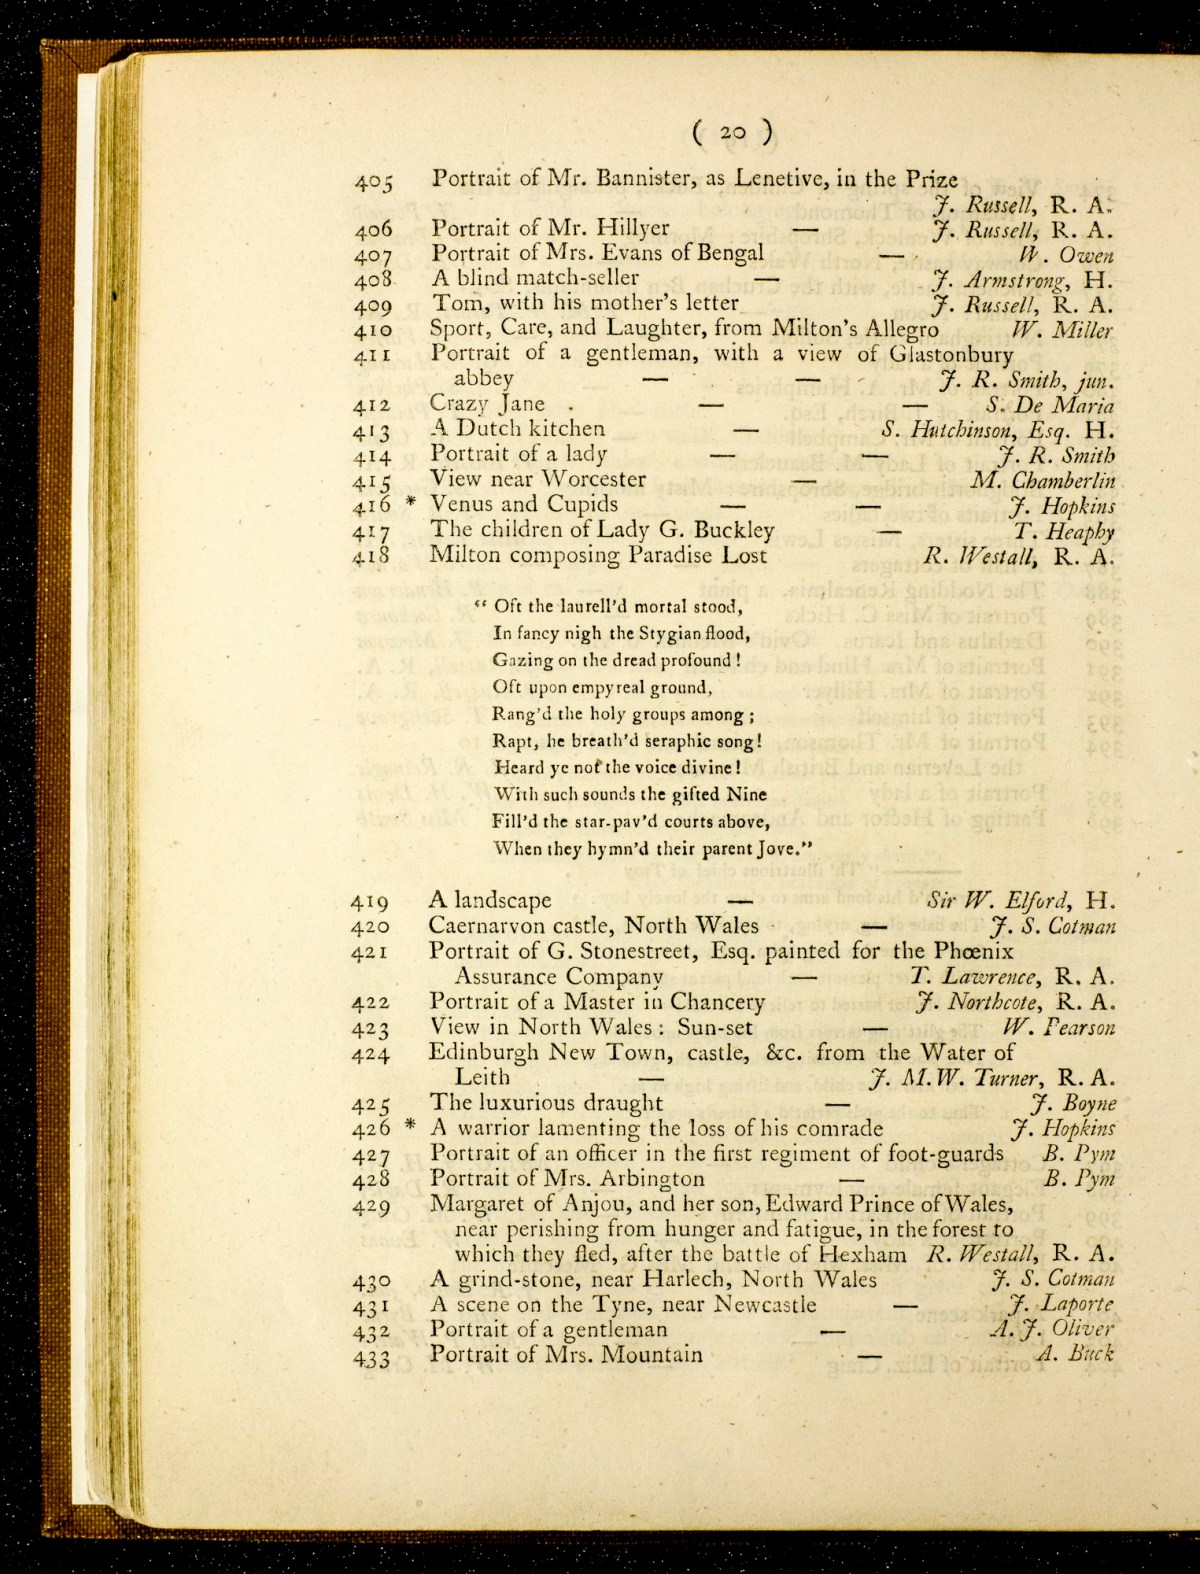 ( 20 )
405 Portrait of Mr. Bannister, as Lenetive, in the Prize
J. Russell, R. A.
406 Portrait of Mr. Hillyer — J. Russell, R. A.
407 Portrait of Mrs. Evans of Bengal — W. Owen
408 A blind match-seller — J. Armstrong, H.
409 Tom, with his mother's letter J. Russell, R. A.
410 Sport, Care, and Laughter, from Milton's Allegro W. Miller
411 Portrait of a gentleman, with a view of Glastonbury
abbey — — J. R. Smith, jun.
412 Crazy Jane — — S. De Maria
413 A Dutch kitchen — S. Hutchinson, Esq. H.
414 Portrait of a lady — — J. R. Smith
415 View near Worcester — M. Chamberlin
416 * Venus and Cupids — — J. Hopkins
417 The children of Lady G. Buckley — T. Heaphy
418 Milton composing Paradise Lost R. Westall, R. A.
“ Oft the laurell'd mortal stood,
In fancy nigh the Stygian flood,
Gazing on the dread profound !
Oft upon empyreal ground,
Rang'd the holy groups among ;
Rapt, he breath'd seraphic song!
Heard ye not the voice divine!
With such sounds the gifted Nine
Fill'd the star-pav'd courts above,
When they hymn'd their parent Jove.”
419 A landscape — Sir W. Elford, H.
420 Caernarvon castle, North Wales — J. S. Cotman
421 Portrait of G. Stonestreet, Esq. painted for the Phœnix
Assurance Company — T. Lawrence, R. A.
422 Portrait of a Master in Chancery J. Northcote, R. A.
423 View in North Wales : Sun-set — W. Pearson
424 Edinburgh New Town, castle, &c. from the Water of
Leith — J. M. W. Turner, R. A.
425 The luxurious draught — J. Boyne
426 * A warrior lamenting the loss of his comrade J. Hopkins
427 Portrait of an officer in the first regiment of foot-guards B. Pym
428 Portrait of Mrs. Arbington — B. Pym
429 Margaret of Anjou, and her son, Edward Prince of Wales,
near perishing from hunger and fatigue, in the forest to
which they fled, after the battle of Hexham R. Westall, R. A.
430 A grind-stone, near Harlech, North Wales J. S. Cotman
431 A scene on the Tyne, near Newcastle — J. Laporte
432 Portrait of a gentleman — A. J. Oliver
433 Portrait of Mrs. Mountain — A. Buck